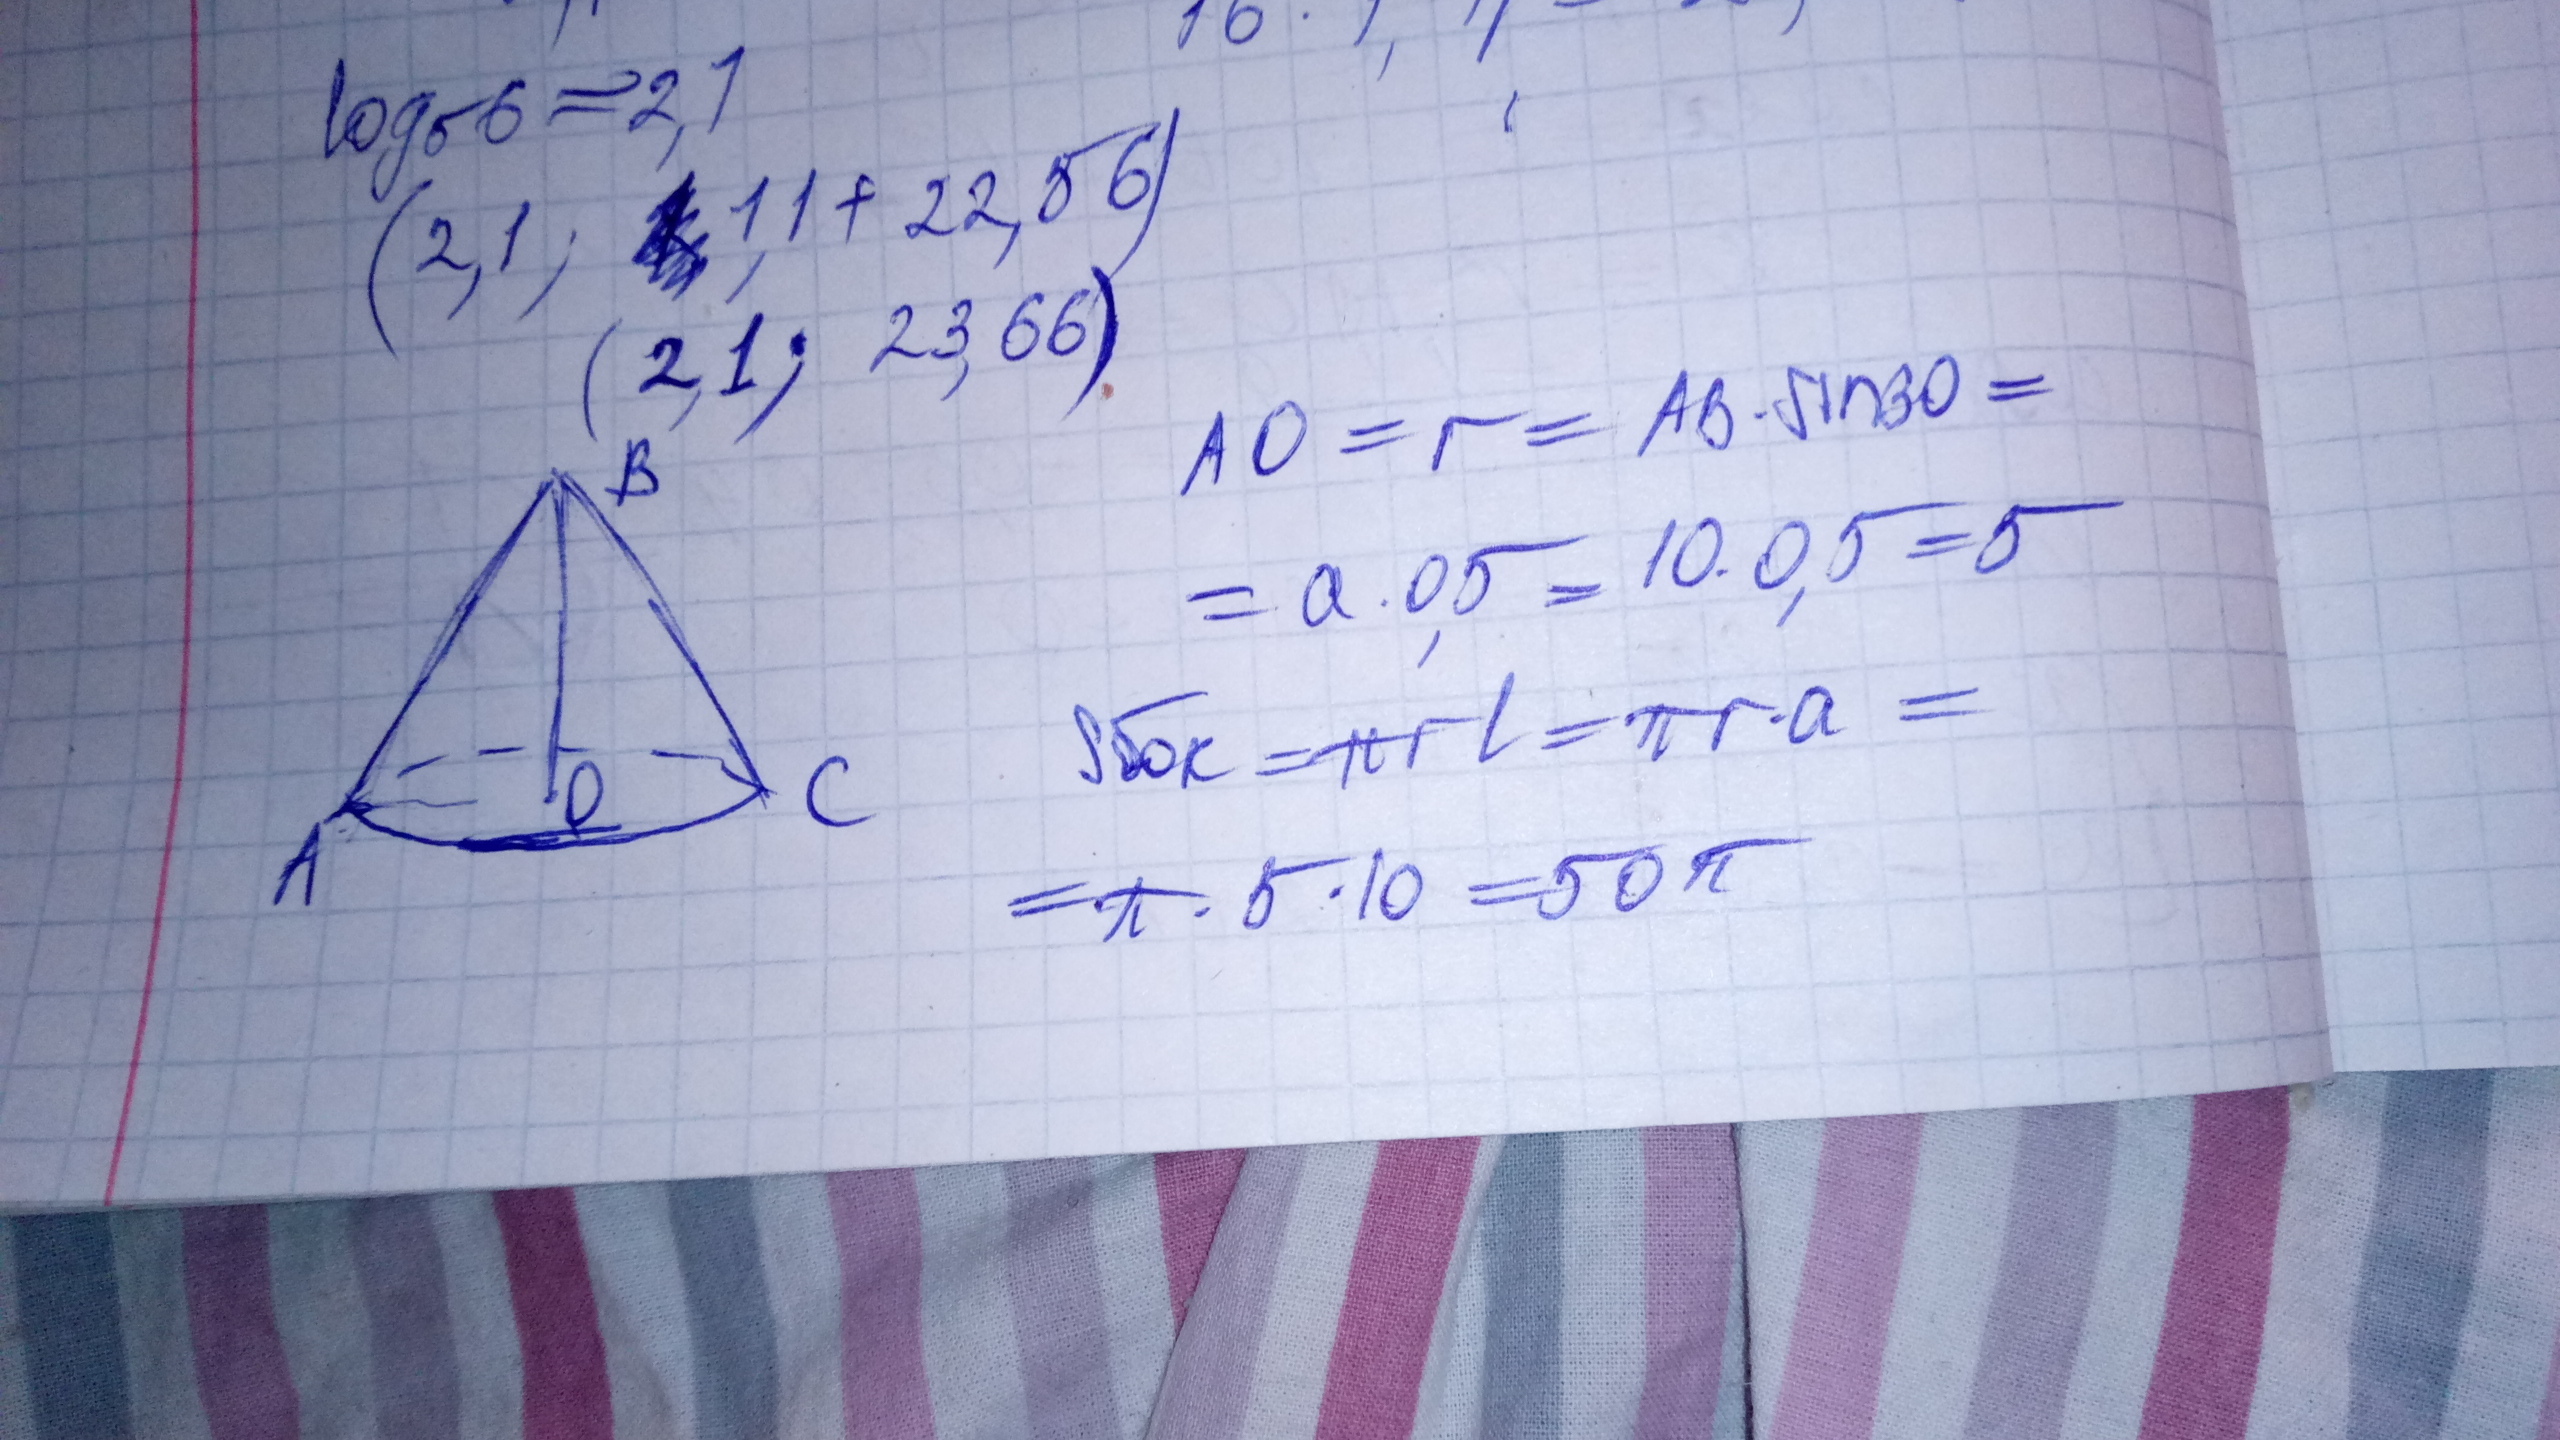 log₅6 = 2,1
(2,1; 1,1 + 22,56)
(2,1; 23,66)
B
A
O
C
AO = r = AB · sin30 =
= a · 0,5 = 10 · 0,5 = 5
Sбок = πrl = πr·a =
= π · 5 · 10 = 50π